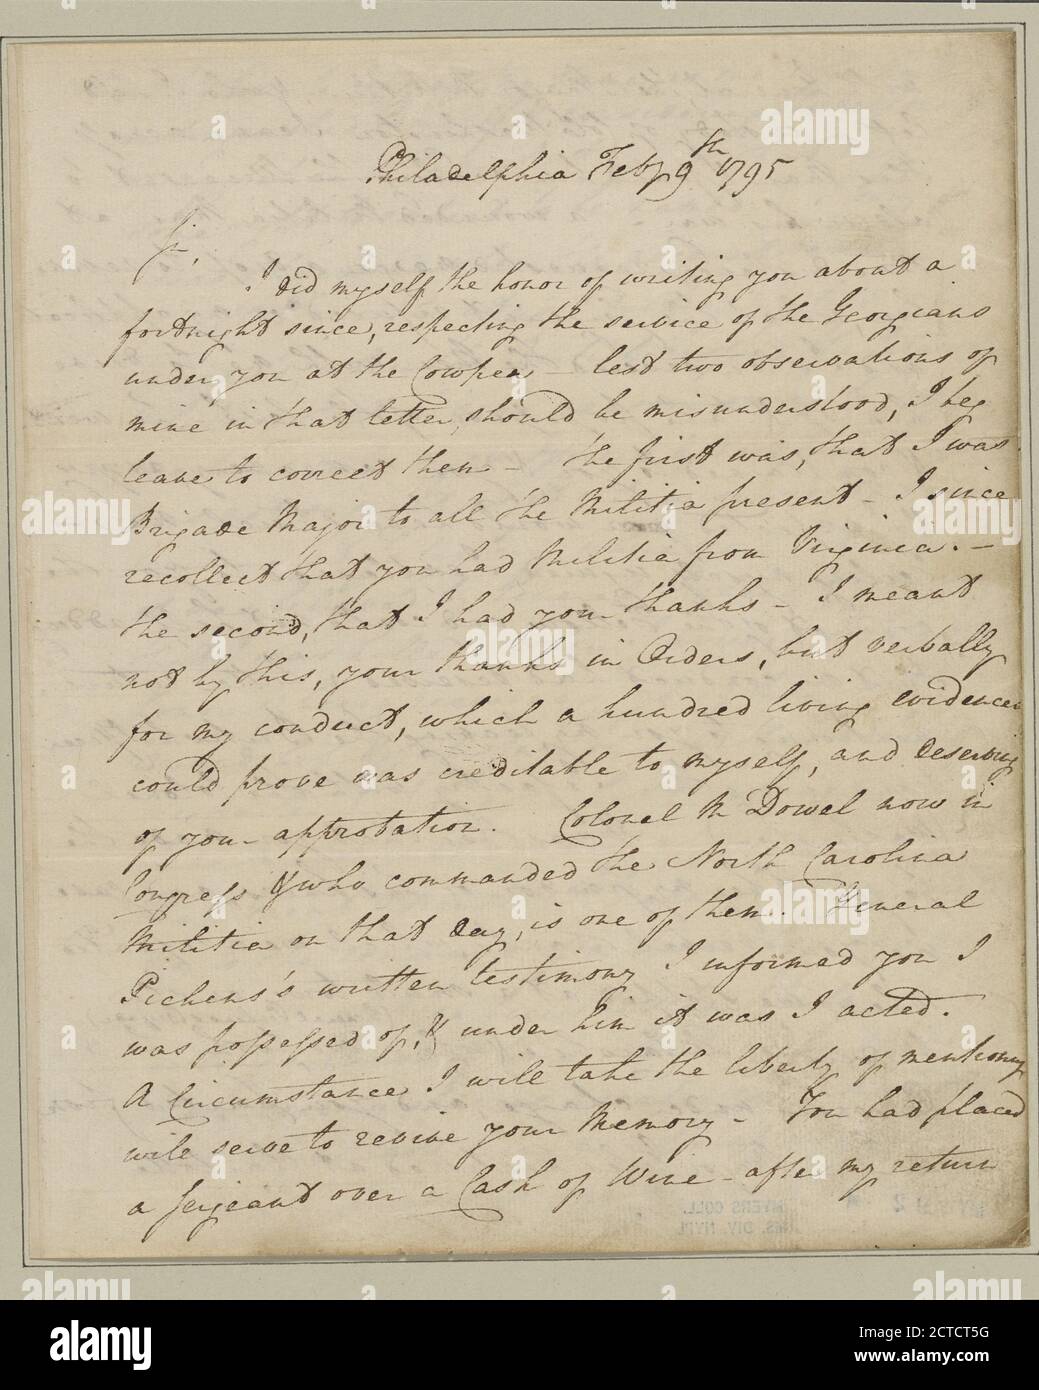 Philadelphia Feby 9th 1795
Sir,
I did myself the honor of writing you about a
fortnight since, respecting the service of the Georgians
under you at the Cowpens – lest two observations of
mine in that letter, should be misunderstood, I beg
leave to correct them – The first was, that I was
Brigade Major to all the Militia present – I since
recollect that you had Militia from Virginia. –
The second, that I had your thanks – I meant
not by this, your thanks in Orders, but verbally
for my conduct, which a hundred living evidences
could prove was creditable to myself, and deserving
of your approbation. Colonel McDowel now in
Congress & who commanded the North Carolina
Militia on that day, is one of them. General
Pickens's written testimony I informed you I
was possessed of, & under him it was I acted.
A Circumstance I will take the liberty of mentioning
will serve to revive your Memory – You had placed
a serjeant over a Cask of Wine – after my return
MYERS COLL.
MS. DIV. NYPL
alamy
Image ID: 2CTCT5G
www.alamy.com